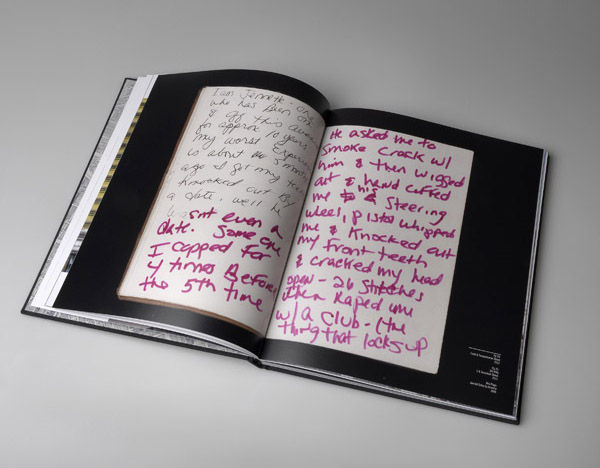 I am Jennette - and
who has been on
& off this
for approx 10 years
my worst experience
is about 6 months
ago I got my teeth
knocked out By
a date, well he
wasnt even a
date. Some one
I copped for
4 times Before
the 5th time
He asked me to
Smoke Crack w/
him & then wigged
out & hand cuffed
me his Steering
wheel, pistol whipped
me & Knocked out
my front teeth
& cracked my head
open - 26 Stitches
then Raped me
w/ a club - (the
thing that locks up